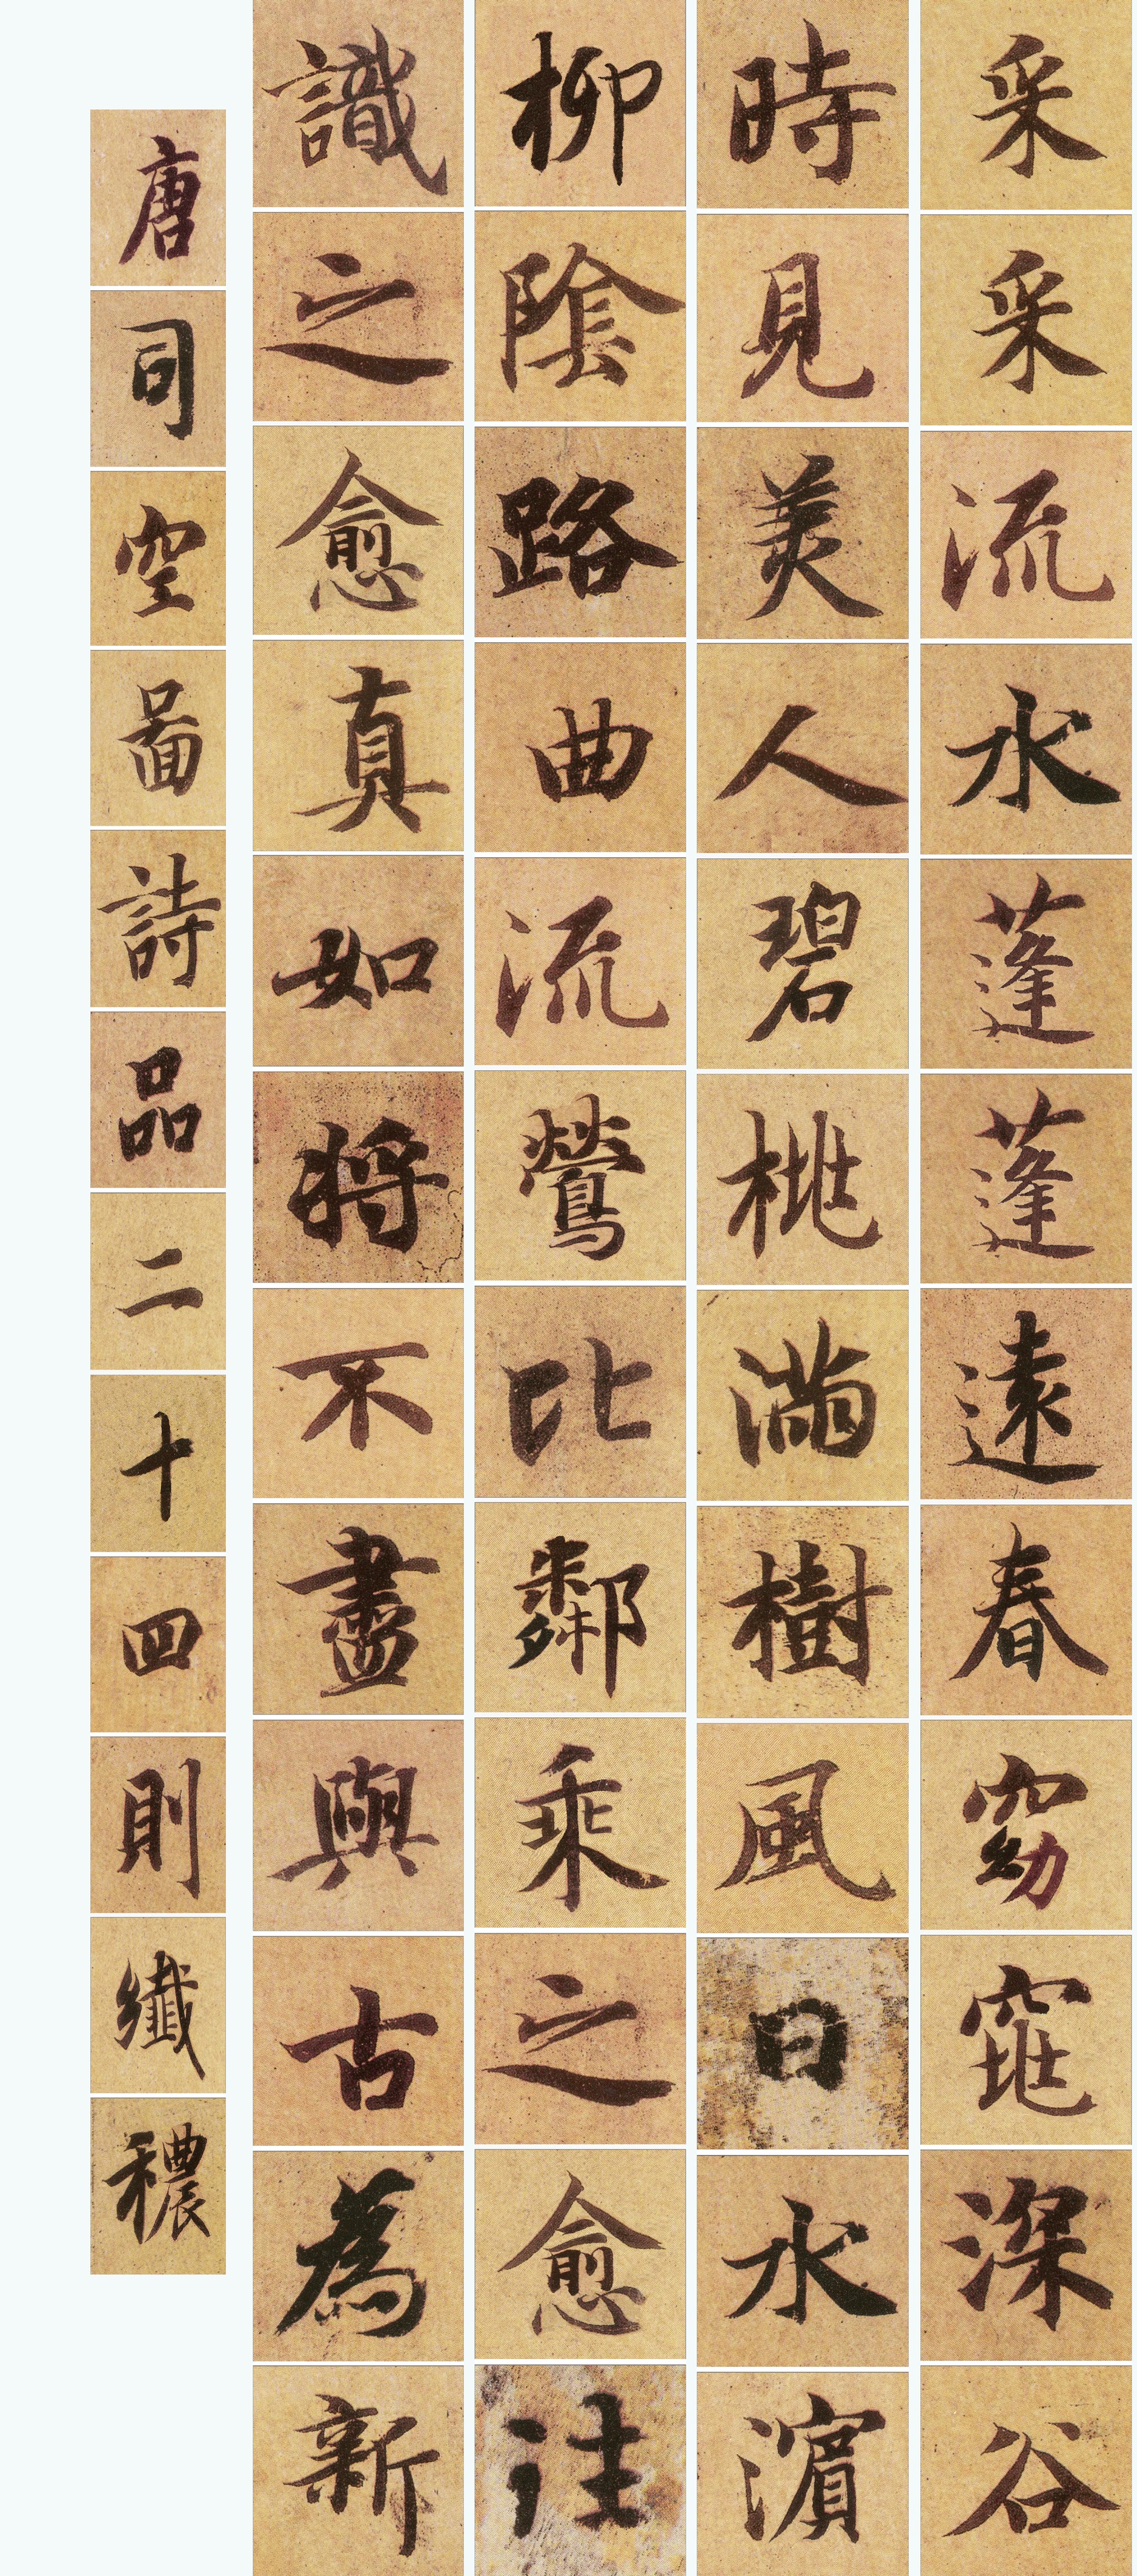 采采流水蓬蓬遠春窈窕深谷
時見美人碧桃滿樹風日水濱
柳陰路曲流鶯比鄰乘之愈往
識之愈真如將不盡與古為新
唐司空圖詩品二十四則纖穠